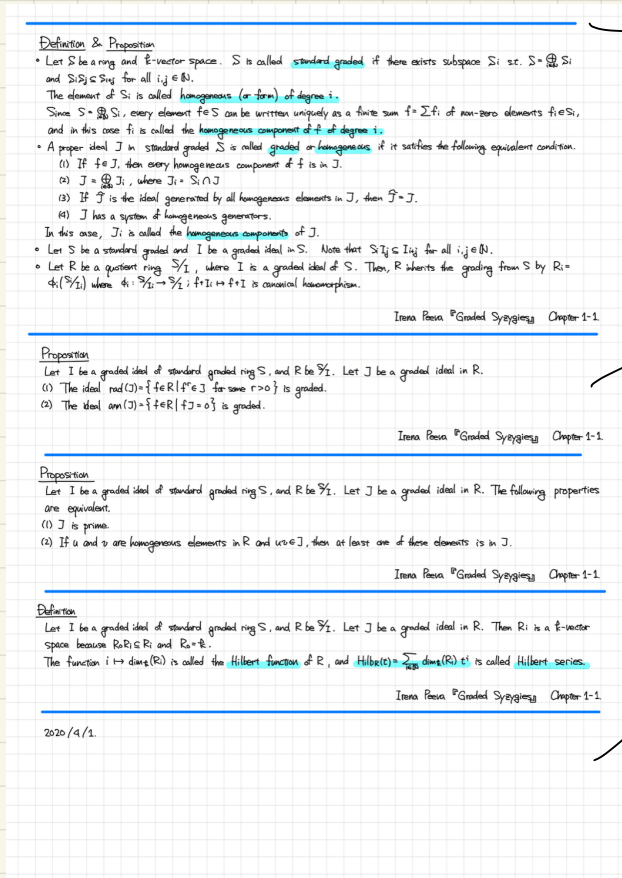 Definition & Proposition
• Let S be a ring and k-vector space. S is called standard graded if there exists subspace Si s.t. S = ⊕ Si
i∈N
and SiSj ⊆ Si+j for all i,j ∈ N.
The element of Si is called homogeneous (or form) of degree i.
Since S = ⊕ Si, every element f∈S can be written uniquely as a finite sum f = Σfi of non-zero elements fi∈Si,
and in this case fi is called the homogeneous component of f of degree i.
• A proper ideal J in standard graded S is called graded or homogeneous if it satifies the following equivalent condition.
(1) If f∈J, then every homogeneous component of f is in J.
(2) J = ⊕ Ji, where Ji = Si∩J
(3) If J̃ is the ideal generated by all homogeneous elements in J, then J̃ = J.
(4) J has a system of homogeneous generators.
In this case, Ji is called the homogeneous components of J.
• Let S be a standard graded and I be a graded ideal in S. Note that SiIj ⊆ Ii+j for all i,j ∈ N.
• Let R be a quotient ring S/I, where I is a graded ideal of S. Then, R inherits the grading from S by Ri =
φi(Si/Ii) where φi : Si/Ii → S/I ; f+Ii ↦ f+I is canonical homomorphism.
Irena Peeva 『Graded Syzygies』 Chapter 1-1.
Proposition
Let I be a graded ideal of standard graded ring S, and R be S/I. Let J be a graded ideal in R.
(1) The ideal rad(J) = {f∈R | fʳ∈J for some r>0} is graded.
(2) The ideal ann(J) = {f∈R | fJ=0} is graded.
Irena Peeva 『Graded Syzygies』 Chapter 1-1.
Proposition
Let I be a graded ideal of standard graded ring S, and R be S/I. Let J be a graded ideal in R. The following properties
are equivalent.
(1) J is prime.
(2) If u and v are homogeneous elements in R and uv∈J, then at least one of these elements is in J.
Irena Peeva 『Graded Syzygies』 Chapter 1-1.
Definition
Let I be a graded ideal of standard graded ring S, and R be S/I. Let J be a graded ideal in R. Then Ri is a k-vector
space because R₀Ri ⊆ Ri and R₀ = k.
The function i ↦ dimk(Ri) is called the Hilbert function of R, and HilbR(t) = Σ dimk(Ri) tⁱ is called Hilbert series.
Irena Peeva 『Graded Syzygies』 Chapter 1-1.
2020/4/1.